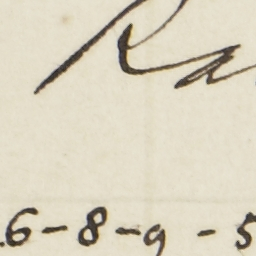 Ra
.6-8-9-5